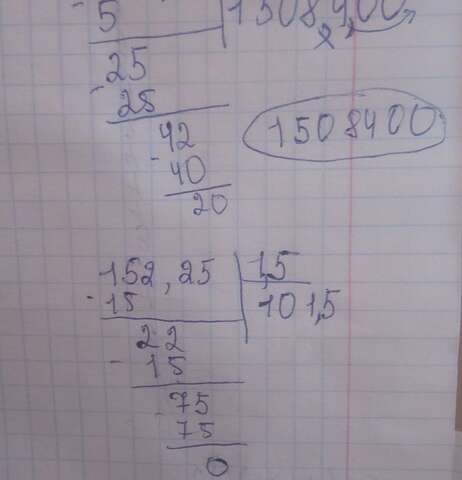 - 5 1508,400
25
- 25
42
- 40
20
1508400
152,25 1,5
- 15 101,5
22
- 15
75
75
0